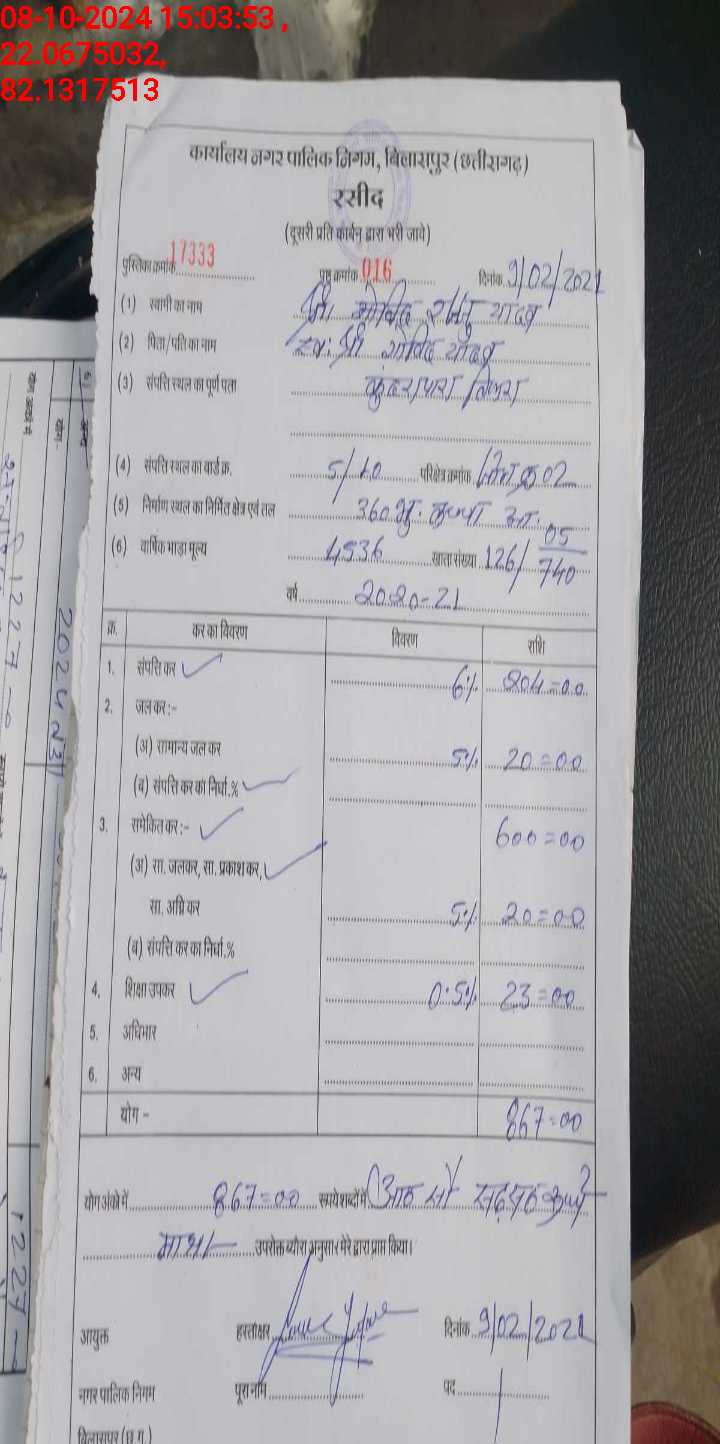 08-10-2024 15:03:53 ,
22.0675032,
82.1317513
कार्यालय नगर पालिक निगम, बिलासपुर (छत्तीसगढ़)
रसीद
(दूसरी प्रति कार्बन द्वारा भरी जावे)
पुस्तिका क्रमांक 17333 पृष्ठ क्रमांक 016 दिनांक 9/02/2021
(1) स्वामी का नाम श्री गोविंद यादव
(2) पिता/पति का नाम स्व: श्री यादव
(3) संपत्ति स्थल का पूर्ण पता
(4) संपत्ति स्थल का वार्ड क्र. 5/40 परिक्षेत्र क्रमांक जोन क्र 02
(5) निर्माण स्थल का निर्मित क्षेत्र एवं तल 360
(6) वार्षिक भाड़ा मूल्य 4536 खाता संख्या 126/ 05/740
वर्ष 2020-21
क्र. कर का विवरण विवरण राशि
1. संपत्ति कर 6% 204=00
2. जल कर :-
(अ) सामान्य जल कर 5% 20=00
(ब) संपत्ति कर का निर्धा.%
3. समेकित कर :- 600=00
(अ) सा. जलकर, सा. प्रकाश कर,
सा. अग्नि कर 5% 20=00
(ब) संपत्ति कर का निर्धा.%
4. शिक्षा उपकर 0.5% 23=00
5. अधिभार
6. अन्य
योग - 867=00
योग अंको में 867=00 रूपये शब्दों में (आठ सौ सड़सठ रूपये
मात्र।- उपरोक्त ब्यौरा अनुसार मेरे द्वारा प्राप्त किया।
आयुक्त हस्ताक्षर दिनांक 9/02/2021
नगर पालिक निगम पूरा नाम पद
बिलासपुर (छ.ग.)
2024
1227